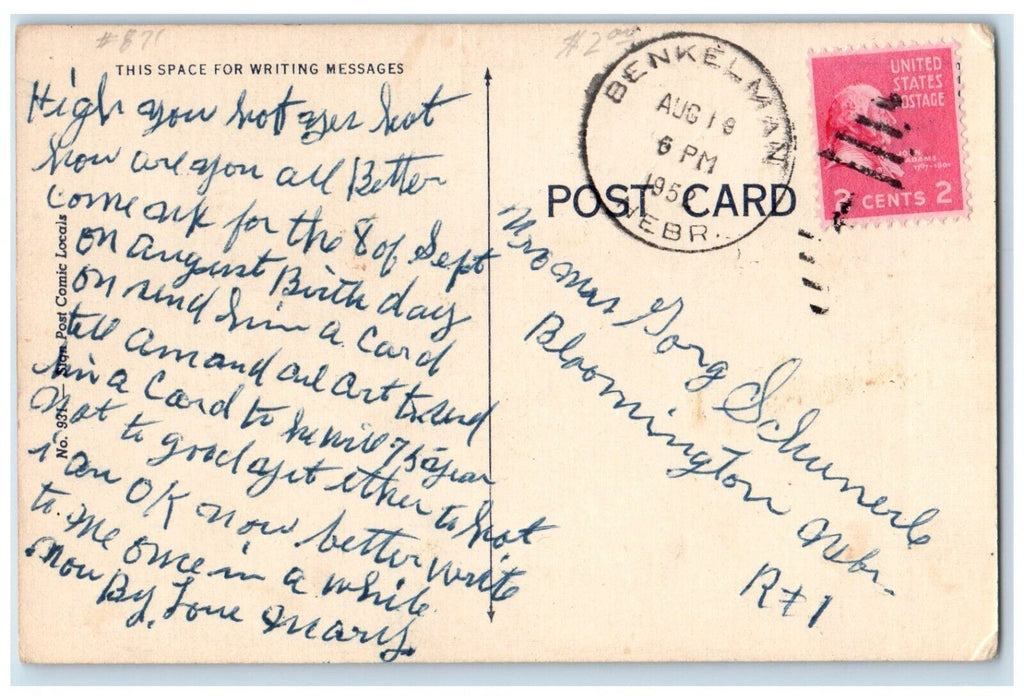 #871
$2.00
THIS SPACE FOR WRITING MESSAGES
High you hot yer hot
how are you all Better
come up for the 8 of Sept
on august Birth day
on send him a Card
tell Am and art to send
him a Card to he will 75 year
not to good yet ether to hot
i am OK now better write
to me once in a while
now By, Love Mary
No. 931 — Sign Post Comic Locals
BENKELMAN
AUG 19
6 PM
1952
NEBR.
UNITED
STATES
POSTAGE
JOHN
ADAMS
1797-1801
2 CENTS 2
POST CARD
Mr o Mrs Gorg Schunerle
Bloomington Nebr.
R#1